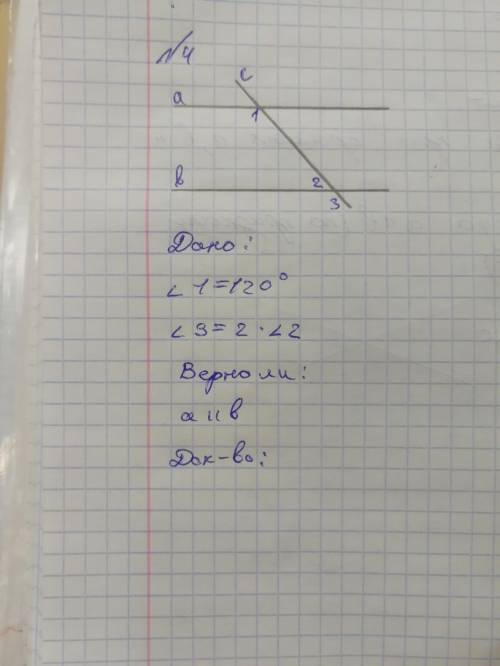 №4
c
a
1
b
2
3
Дано:
∠1=120°
∠3=2·∠2
Верно ли:
aıı b
Док-во: